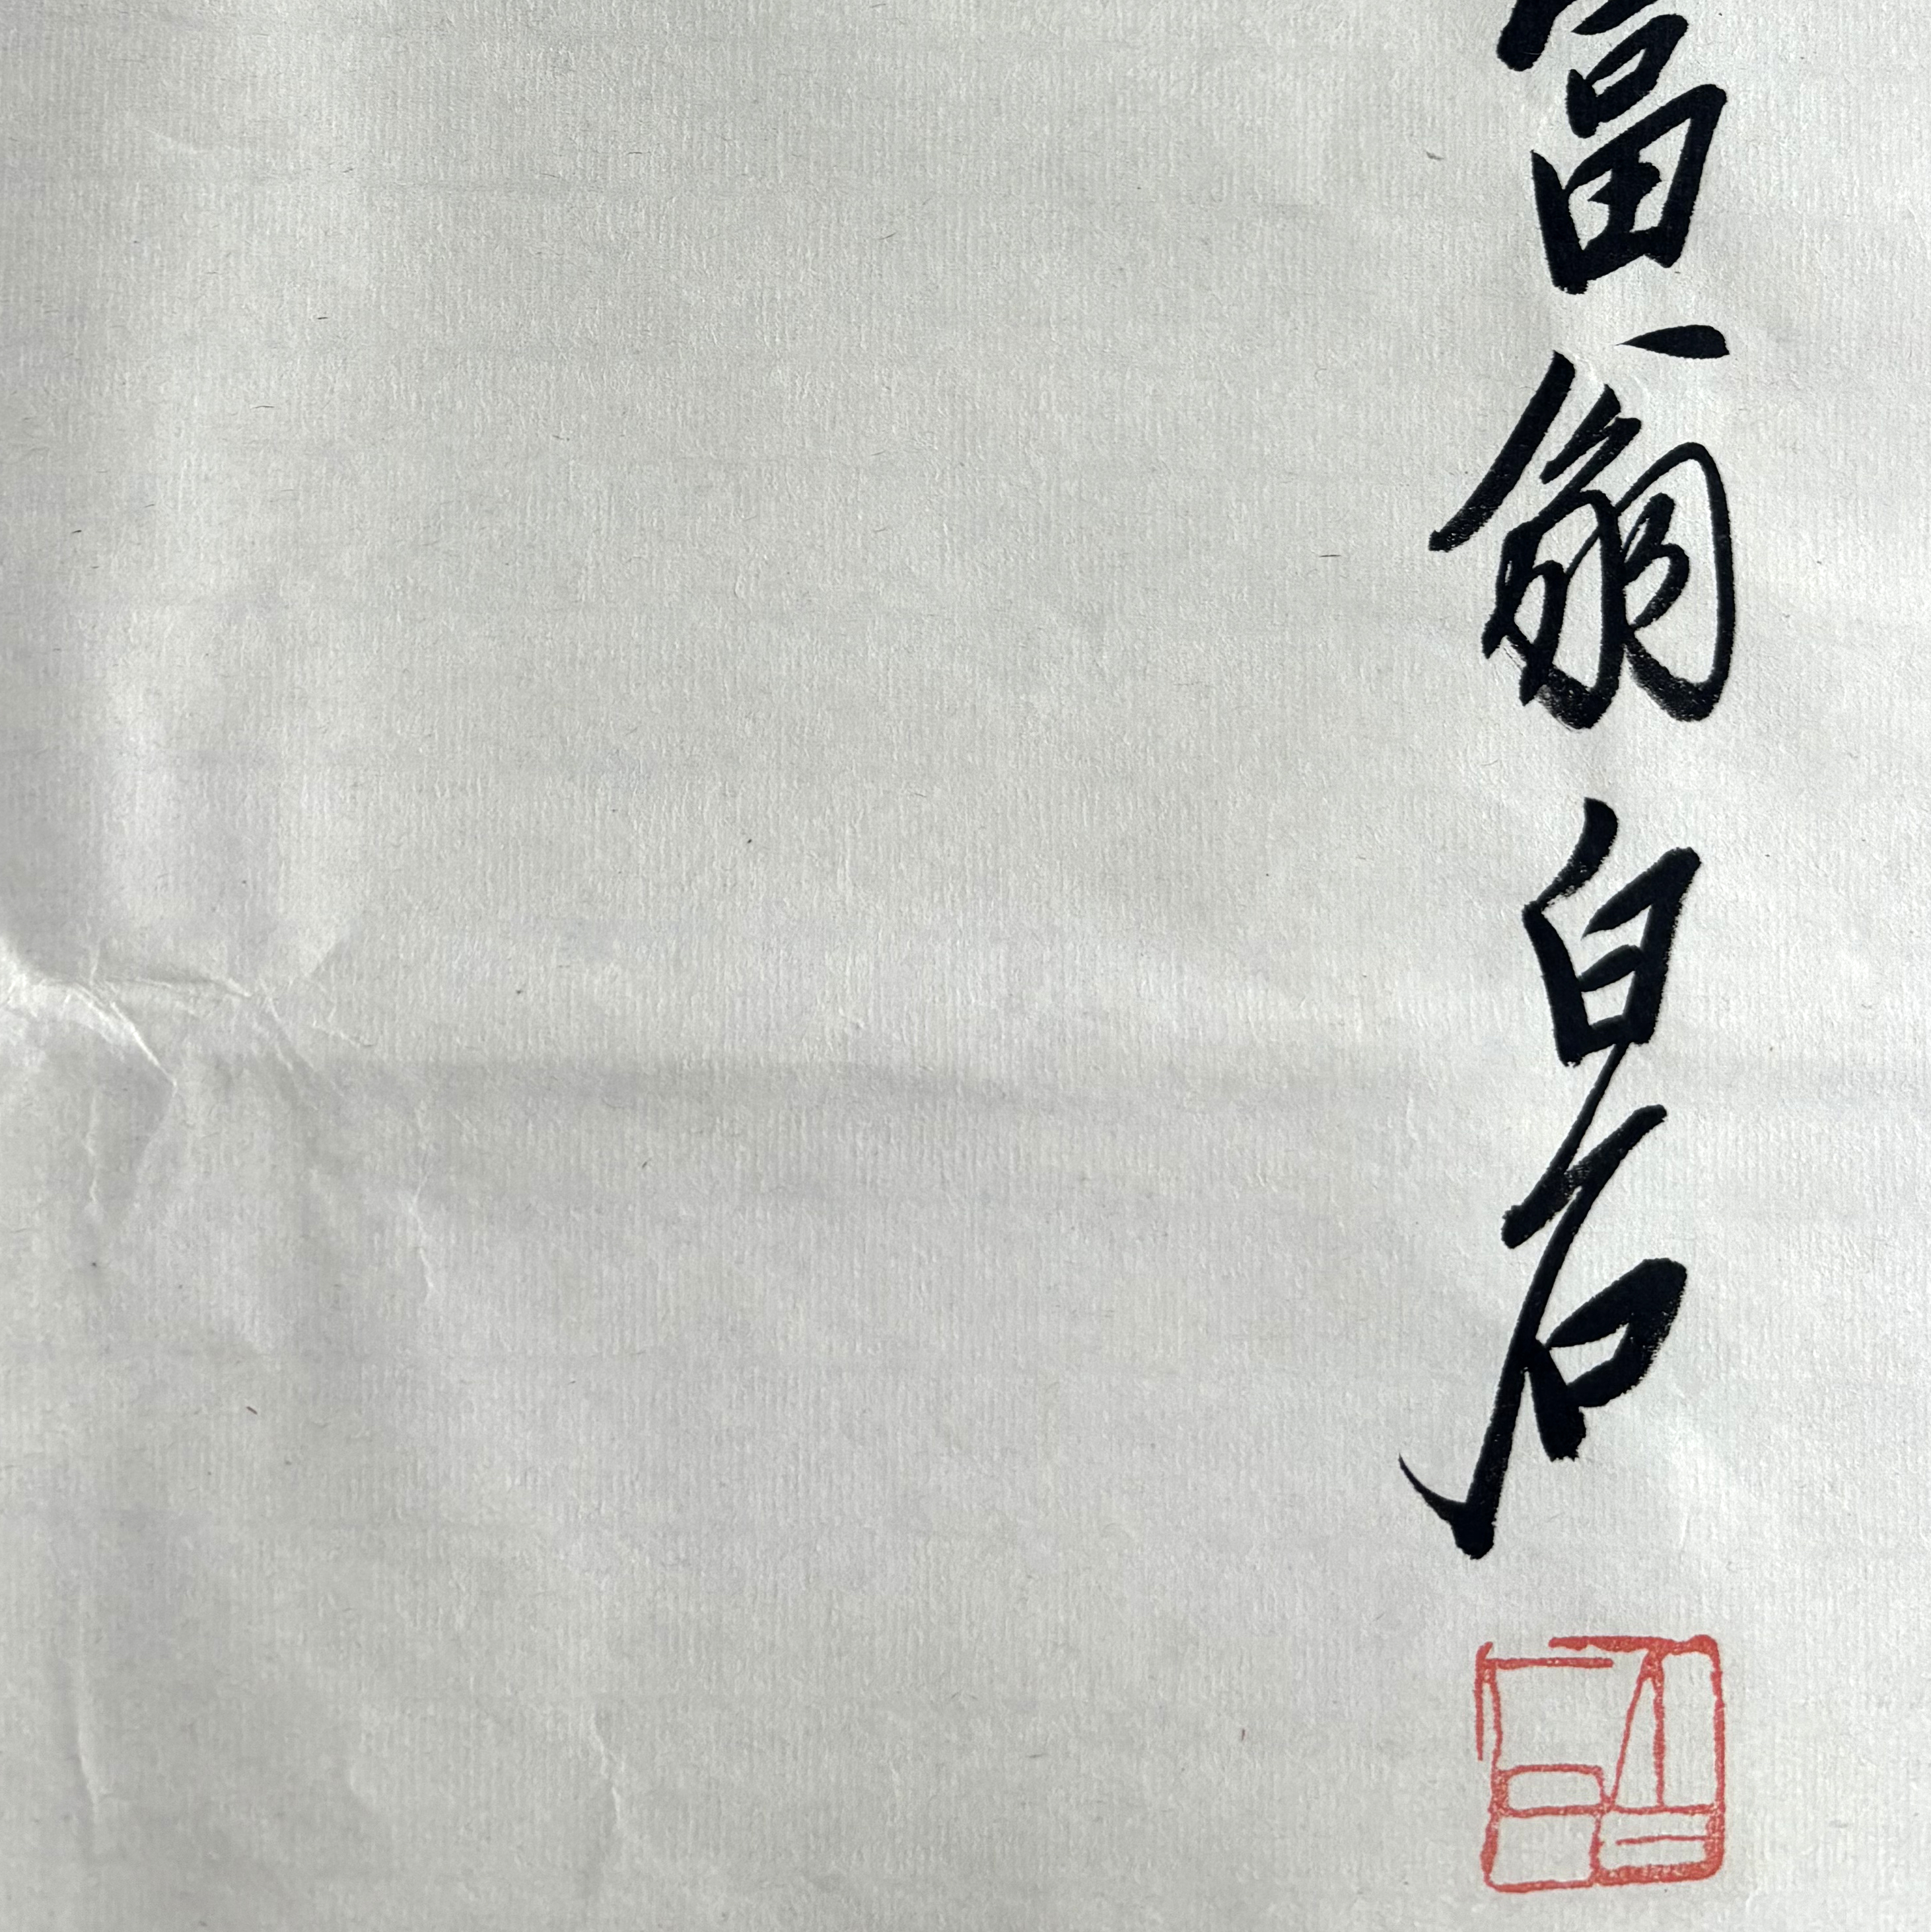 富翁白石